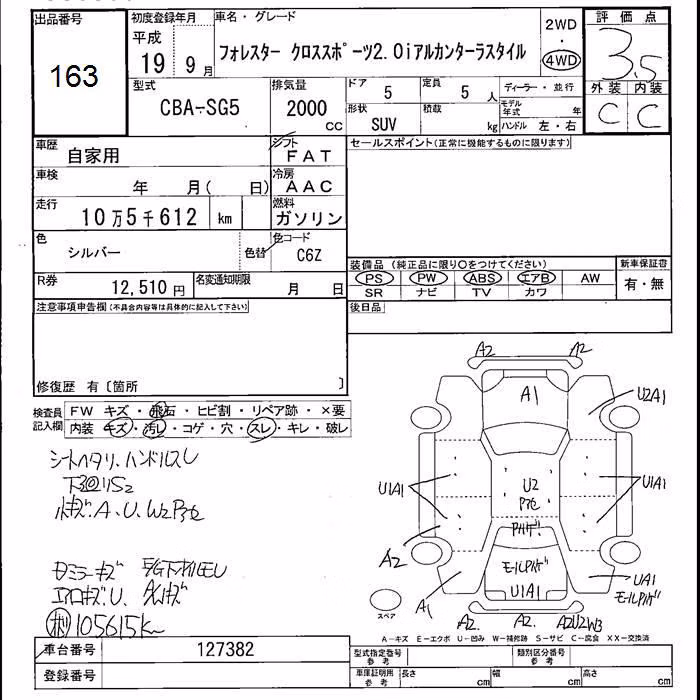 出品番号
163
初度登録年月
平成
19 9月
車名・グレード
フォレスター クロススポーツ2.0iアルカンターラスタイル
2WD
・
4WD
評価点
3.5
外装 内装
C C
型式
CBA-SG5
排気量
2000
CC
ドア
5
定員
5 人
ディーラー・並行
形状
SUV
積載
kg
モデル年式 年
ハンドル 左・右
車歴
自家用
シフト
FAT
セールスポイント(正常に機能するものに限ります)
車検
年 月( 日)
冷房
AAC
走行
10万5千612 km
燃料
ガソリン
色
シルバー
色替
色コード
C6Z
装備品 (純正品に限り○をつけてください)
新車保証書
PS PW ABS エアB AW
有・無
SR ナビ TV カワ
R券
12,510円
名変通知期限
月 日
後日品
注意事項申告欄(不具合内容等は具体的に記入して下さい)
修復歴 有〔箇所 〕
検査員記入欄
FW キズ・飛石・ヒビ割・リペア跡・×要
内装 キズ・汚レ・コゲ・穴・スレ・キレ・破レ
シートヘタリ、ハンドルスレ
下回りS2
小キズ.A、U、W2
エアロキズ.U、AWキズ
105615km
A2 A2
A1
U2A1
U1A1
U2
U1A1
A2
A1
モールハゲ
U1A1
U1A1
モールハゲ
スペア
A2. A2. A2U2W3
A-キズ E-エクボ U-凹み W-補修跡 S-サビ C-腐食 XX-交換済
車台番号
127382
型式指定番号
参考
類別区分番号
参考
登録番号
車庫証明用
参考
長さ cm 幅 cm 高さ cm